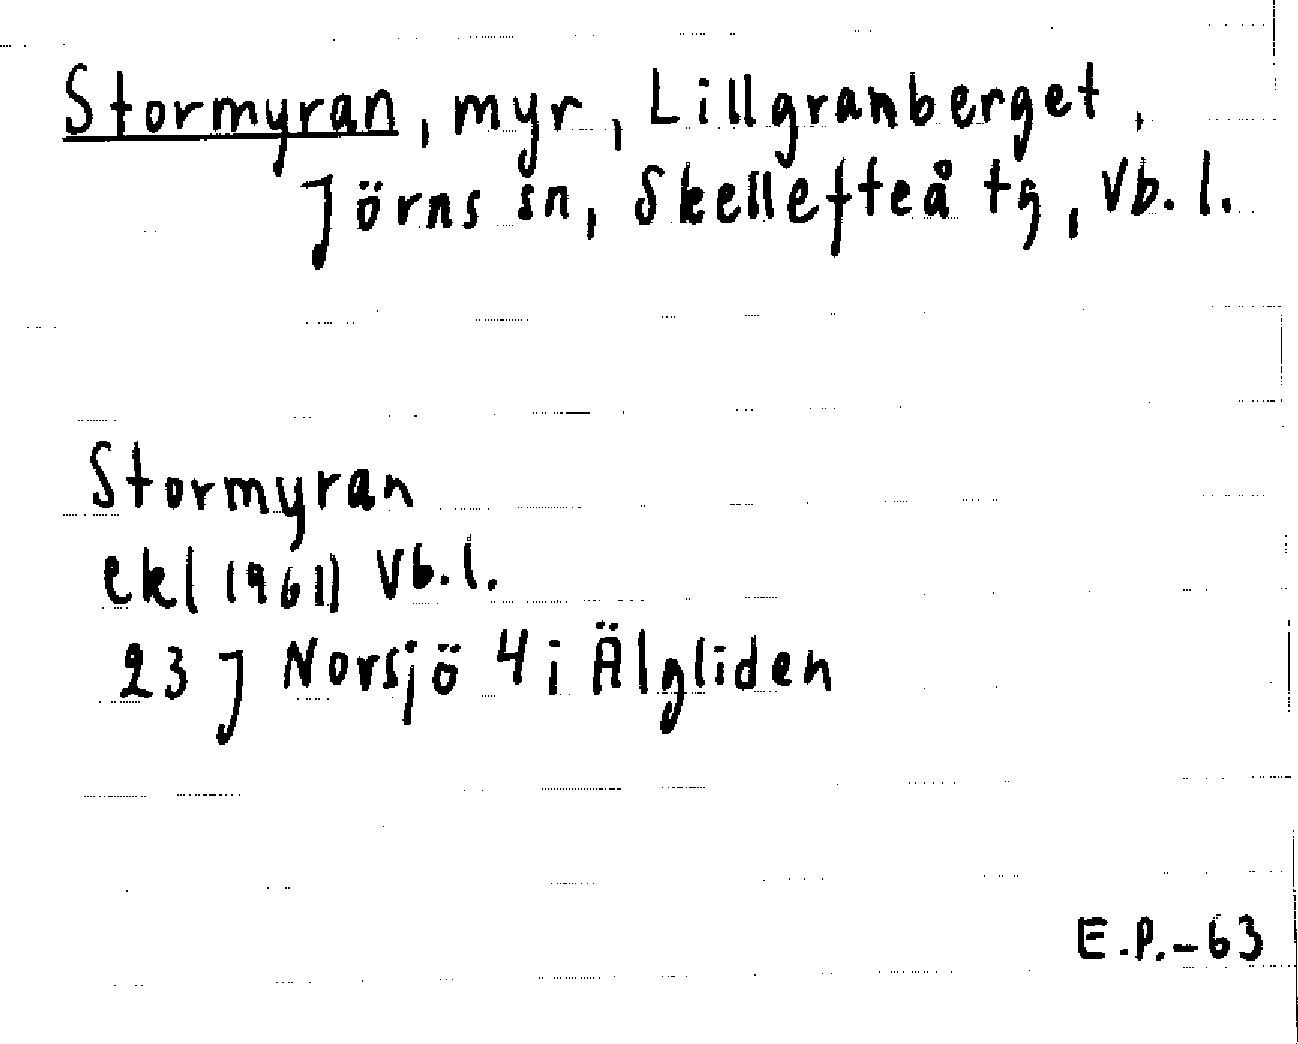 Stormyran, myr, Lillgranberget,
Jörns sn, Skellefteå tg, Vb. l.
Stormyran
ekl (1961) Vb. l.
23 J Norsjö 4 i Älgliden
E.P.-63